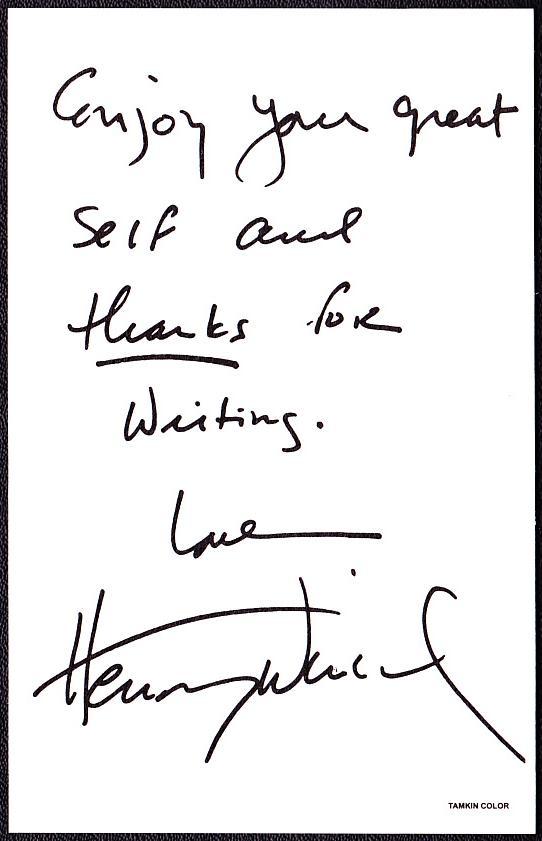 Enjoy your great
self and
thanks for
Writing.
Love
Henry Winkler
TAMKIN COLOR